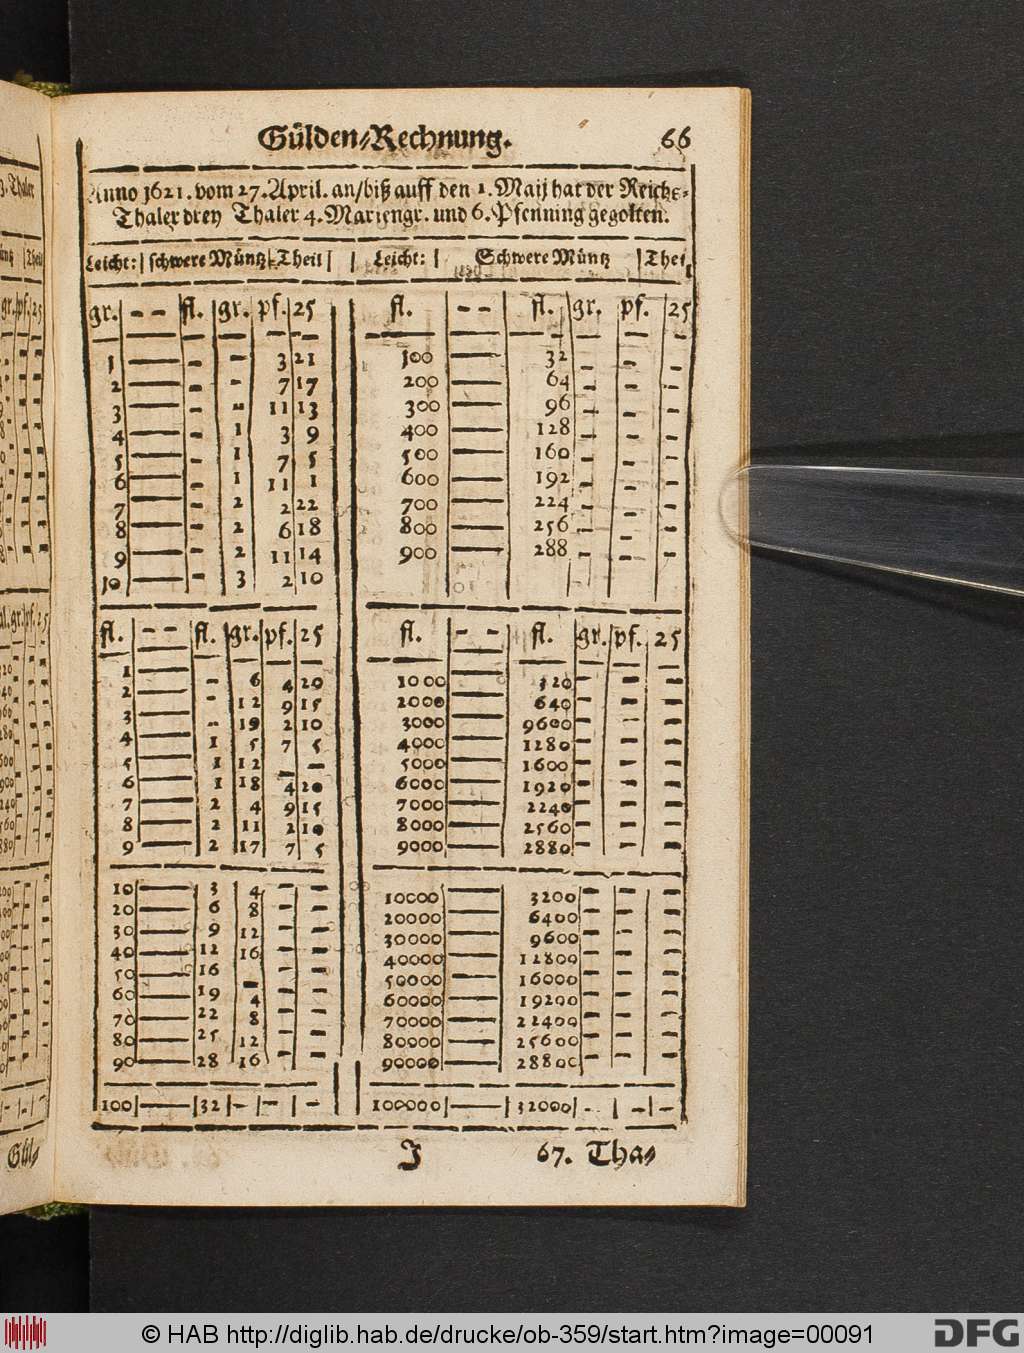 Gülden-Rechnung. 66
Anno 1621. vom 27. April. an/biß auff den 1. Maij hat der Reichs-
Thaler drey Thaler 4. Mariengr. und 6. Pfenning gegolten.
Leicht: | schwere Müntz-Theil | | Leicht: | Schwere Müntz | Theil
gr. | - - | fl. | gr. | pf. | 25 | fl. | - - | fl. | gr. | pf. | 25
1 — - - 3 21 | 100 — 32 - - -
2 — - - 7 17 | 200 — 64 - - -
3 — - - 11 13 | 300 — 96 - - -
4 — - 1 3 9 | 400 — 128 - - -
5 — - 1 7 5 | 500 — 160 - - -
6 — - 1 11 1 | 600 — 192 - - -
7 — - 2 2 22 | 700 — 224 - - -
8 — - 2 6 18 | 800 — 256 - - -
9 — - 2 11 14 | 900 — 288 - - -
10 — - 3 2 10
fl. | - - | fl. | gr. | pf. | 25 | fl. | - - | fl. | gr. | pf. | 25
1 — - 6 4 20 | 1000 — 320 - - -
2 — - 12 9 15 | 2000 — 640 - - -
3 — - 19 2 10 | 3000 — 9600 - - -
4 — 1 5 7 5 | 4000 — 1280 - - -
5 — 1 12 - - | 5000 — 1600 - - -
6 — 1 18 4 20 | 6000 — 1920 - - -
7 — 2 4 9 15 | 7000 — 2240 - - -
8 — 2 11 2 10 | 8000 — 2560 - - -
9 — 2 17 7 5 | 9000 — 2880 - - -
10 — 3 4 - - | 10000 — 3200 - - -
20 — 6 8 - - | 20000 — 6400 - - -
30 — 9 12 - - | 30000 — 9600 - - -
40 — 12 16 - - | 40000 — 12800 - - -
50 — 16 - - - | 50000 — 16000 - - -
60 — 19 4 - - | 60000 — 19200 - - -
70 — 22 8 - - | 70000 — 22400 - - -
80 — 25 12 - - | 80000 — 25600 - - -
90 — 28 16 - - | 90000 — 28800 - - -
100 | — | 32 | - | - | - | 100000 | — | 32000 | - | - | -
J 67. Tha-
Gül-
© HAB http://diglib.hab.de/drucke/ob-359/start.htm?image=00091
DFG